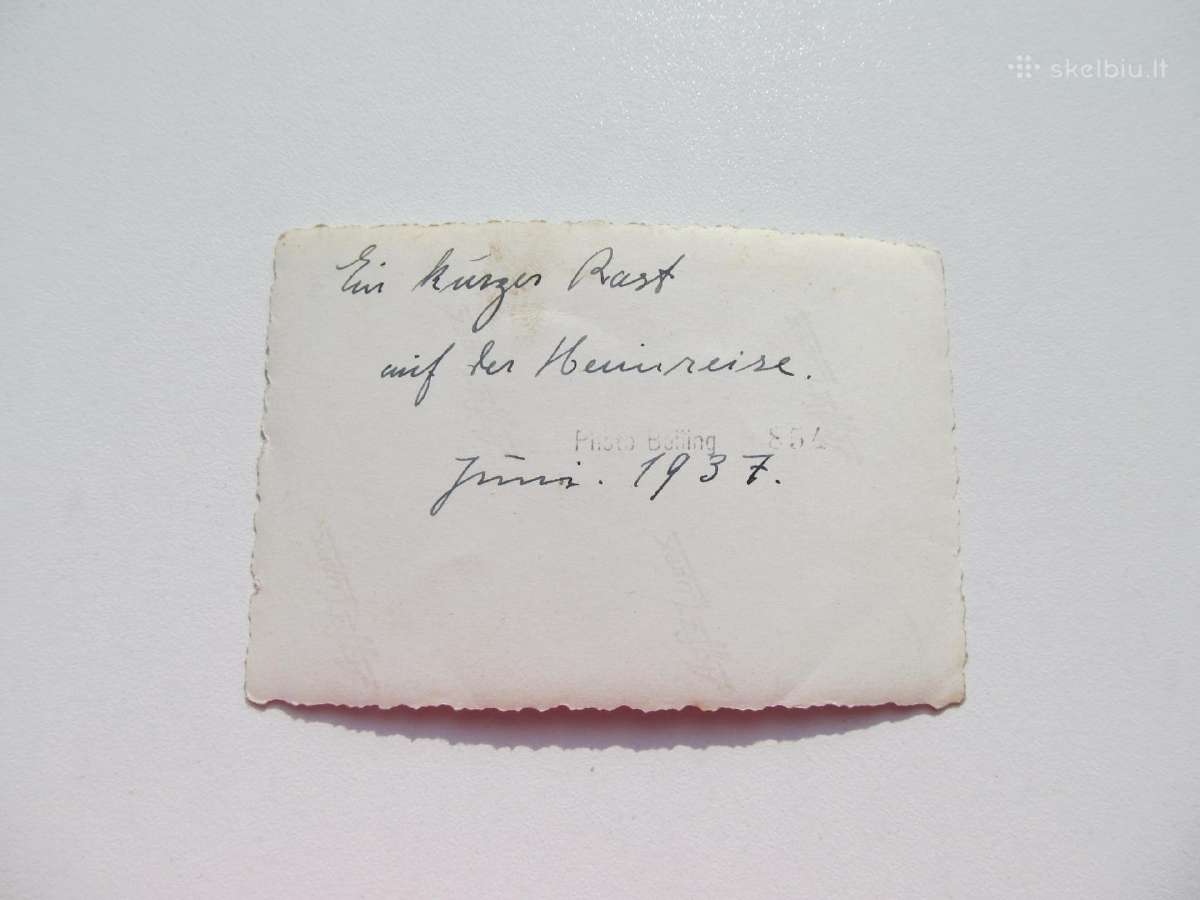 skelbiu.lt
Ein kurzer Rast
auf der Heimreise.
Photo Bolling 854
Juni. 1937.